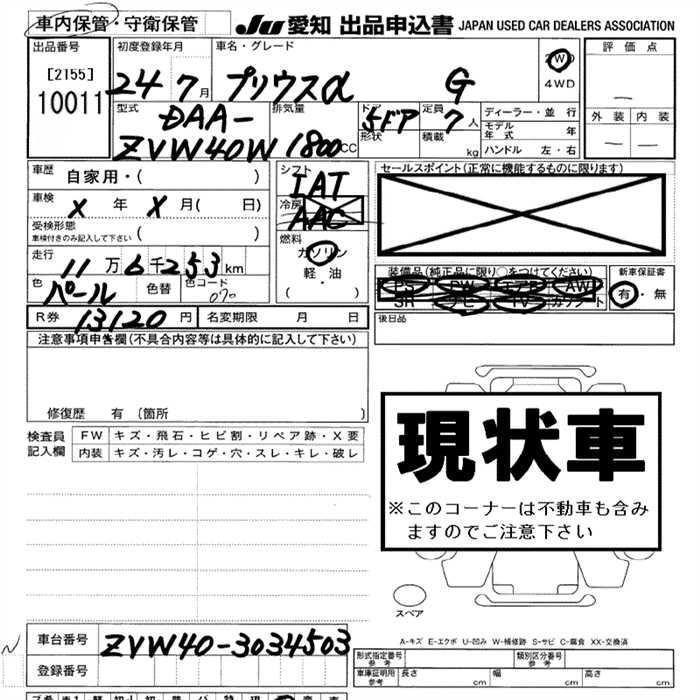 車内保管・守衛保管
JU 愛知 出品申込書 JAPAN USED CAR DEALERS ASSOCIATION
出品番号 [2155] 10011
初度登録年月 24 7月
車名・グレード プリウスα G
2WD
4WD
評価点
外装 内装
型式 DAA-ZVW40W
排気量 1800CC
ドア 5ドア 形状
定員 7人
積載 kg
ディーラー・並行
モデル年式 年
ハンドル 左・右
車歴 自家用・( )
車検 X年 X月( 日)
受検形態
車検付きのみ記入して下さい ( )
走行 11万6千253km
色 パール 色替 色コード 070
シフト IAT
冷房 AAC
燃料 ガソリン
軽・油
( )
セールスポイント(正常に機能するものに限ります)
装備品(純正品に限り○をつけてください)
PS PW エアB AW
SR ナビ TV カワシート
新車保証書
有・無
R券 13120円 名変期限 月 日
後日品
注意事項申告欄(不具合内容等は具体的に記入して下さい)
修復歴 有 〔箇所 〕
検査員記入欄
FW キズ・飛石・ヒビ割・リペア跡・X要
内装 キズ・汚レ・コゲ・穴・スレ・キレ・破レ
現状車
※このコーナーは不動車も含みますのでご注意下さい
スペア
A-キズ E-エクボ U-凹み W-補修跡 S-サビ C-腐食 XX-交換済
車台番号 ZVW40-3034503
登録番号
形式指定番号 参考
類別区分番号 参考
車庫証明用 参考 長さ cm 幅 cm 高さ cm